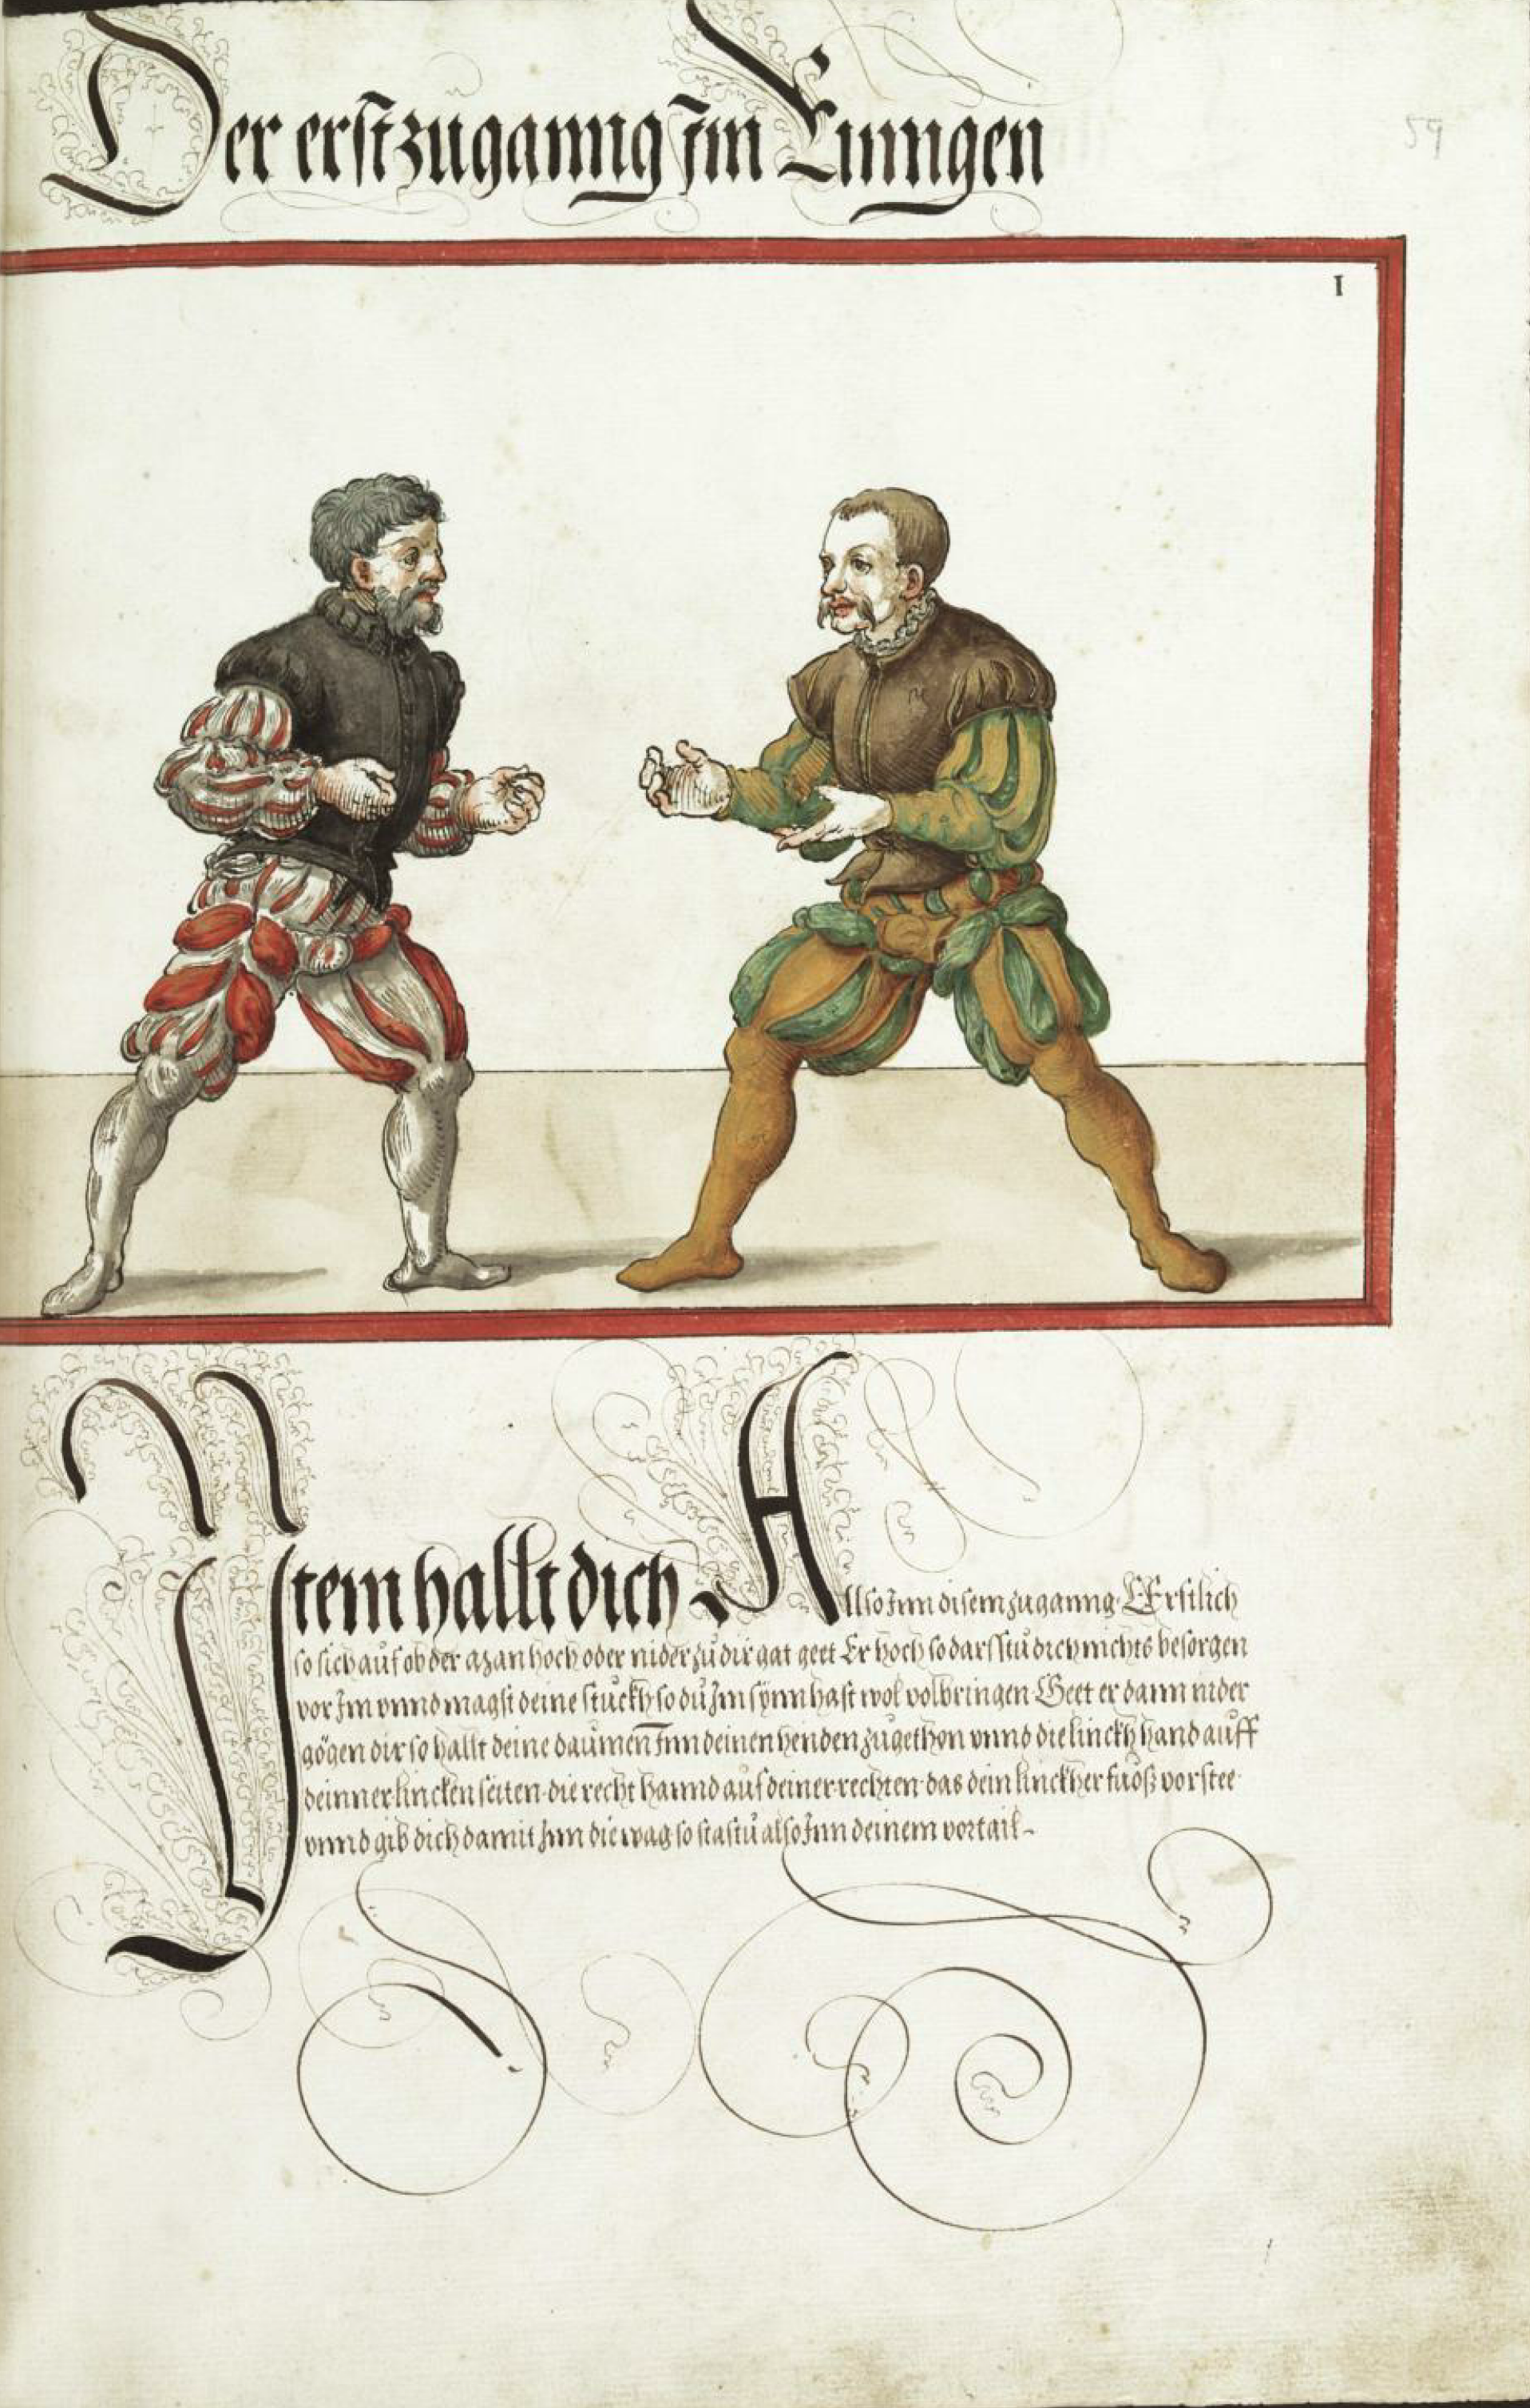 Der erst zuganng Jm Ringen
59
1
Jtem hallt dich Allso Jnn disem zuganng Erstlich
so sich auf ob der a zan hoch oder nider zu dir gat geet Er hoch so darfstu dich nichts besorgen
vor Jm vnnd magst deine stuckh so du Jm synn hast wol volbringen Geet er dann nider
gögen dir so hallt deine daumen Jnn deinen henden zugethon vnnd die linckh hand auff
deinner lincken seiten die recht hannd auf deiner rechten das dein linckher fuoß vor stee
vnnd gib dich damit Jnn die wag so stastu also Jnn deinem vortail